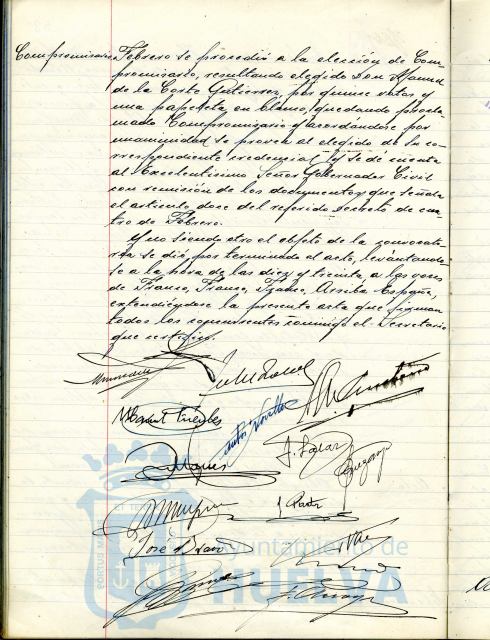 Compromisario Febrero se procedió a la elección de Com
promisario, resultando elegido Don Manuel
de la Corte Gutierrez, por quince votos y
una papeleta en blanco, quedando procla
mado Compromisario y acordándose por
unanimidad se provea al elegido de su co
rrespondiente credencial y se dé cuenta
al Excelentísimo Señor Gobernador Civil
con remisión de los documentos que señala
el artículo doce del referido Decreto de cua
tro de Febrero.
Y no siendo otro el objeto de la convocato
ria se dió por terminado el acto, levantándo
se a la hora de las diez y treinta a las voces
de Franco, Franco, Franco, Arriba España,
extendiéndose la presente acta que firman
todos los concurrentes conmigo el Secretario
que certifico.
José
Ayuntamiento de
HUELVA